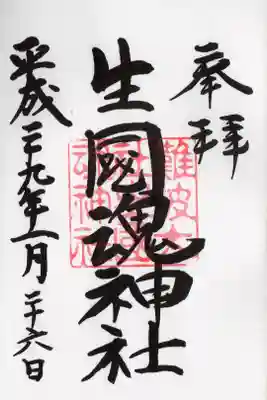 奉拝
生國魂神社
難波大
社生國
魂神社
平成二十九年一月二十六日